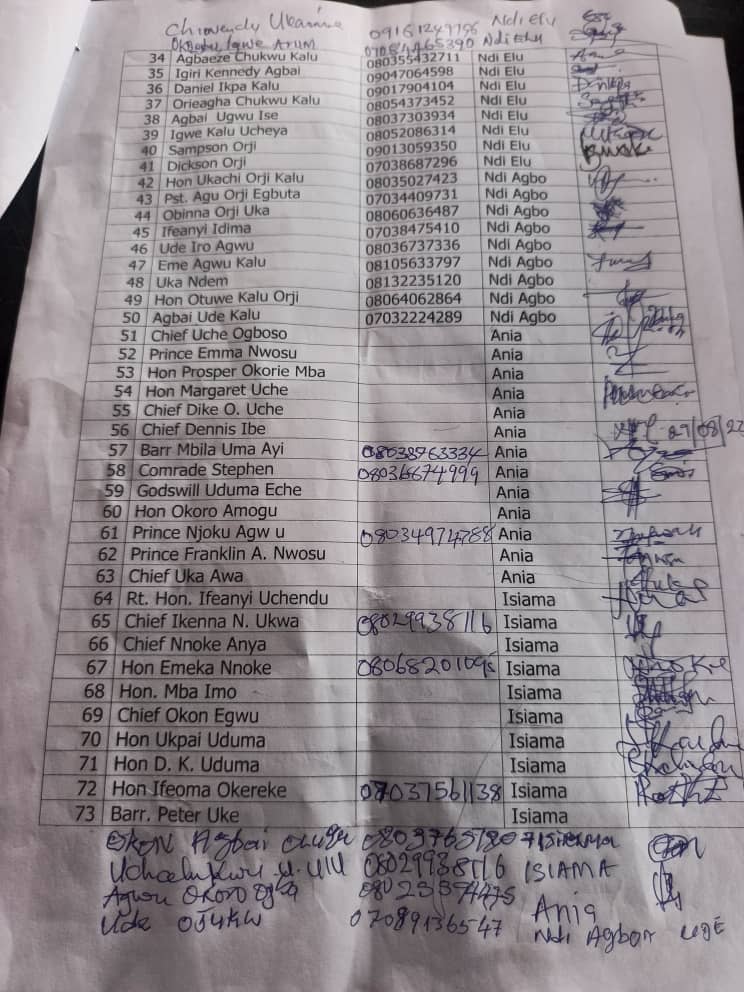 Ndi Elu
09161249796
Okbebu Igwe Arum 07084465390 Ndi Elu
34 Agbaeze Chukwu Kalu 080355432711 Ndi Elu
35 Igiri Kennedy Agbai 09047064598 Ndi Elu
36 Daniel Ikpa Kalu 09017904104 Ndi Elu
37 Orieagha Chukwu Kalu 08054373452 Ndi Elu
38 Agbai Ugwu Ise 08037303934 Ndi Elu
39 Igwe Kalu Ucheya 08052086314 Ndi Elu
40 Sampson Orji 09013059350 Ndi Elu
41 Dickson Orji 07038687296 Ndi Elu
42 Hon Ukachi Orji Kalu 08035027423 Ndi Agbo
43 Pst. Agu Orji Egbuta 07034409731 Ndi Agbo
44 Obinna Orji Uka 08060636487 Ndi Agbo
45 Ifeanyi Idima 07038475410 Ndi Agbo
46 Ude Iro Agwu 08036737336 Ndi Agbo
47 Eme Agwu Kalu 08105633797 Ndi Agbo
48 Uka Ndem 08132235120 Ndi Agbo
49 Hon Otuwe Kalu Orji 08064062864 Ndi Agbo
50 Agbai Ude Kalu 07032224289 Ndi Agbo
51 Chief Uche Ogboso Ania
52 Prince Emma Nwosu Ania
53 Hon Prosper Okorie Mba Ania
54 Hon Margaret Uche Ania
55 Chief Dike O. Uche Ania
56 Chief Dennis Ibe Ania
57 Barr Mbila Uma Ayi 08038763334 Ania
58 Comrade Stephen 08036674999 Ania
59 Godswill Uduma Eche Ania
60 Hon Okoro Amogu Ania
61 Prince Njoku Agw u 08034974788 Ania
62 Prince Franklin A. Nwosu Ania
63 Chief Uka Awa Ania
64 Rt. Hon. Ifeanyi Uchendu Isiama
65 Chief Ikenna N. Ukwa 08029938116 Isiama
66 Chief Nnoke Anya Isiama
67 Hon Emeka Nnoke 08068201095 Isiama
68 Hon. Mba Imo Isiama
69 Chief Okon Egwu Isiama
70 Hon Ukpai Uduma Isiama
71 Hon D. K. Uduma Isiama
72 Hon Ifeoma Okereke 07037561138 Isiama
73 Barr. Peter Uke Isiama
OKON Agbai 08037651807 Isiama
08029938116 ISIAMA
Agwu OKORO Ania
Uda OJUKW 07089136547 Ndi Agbor